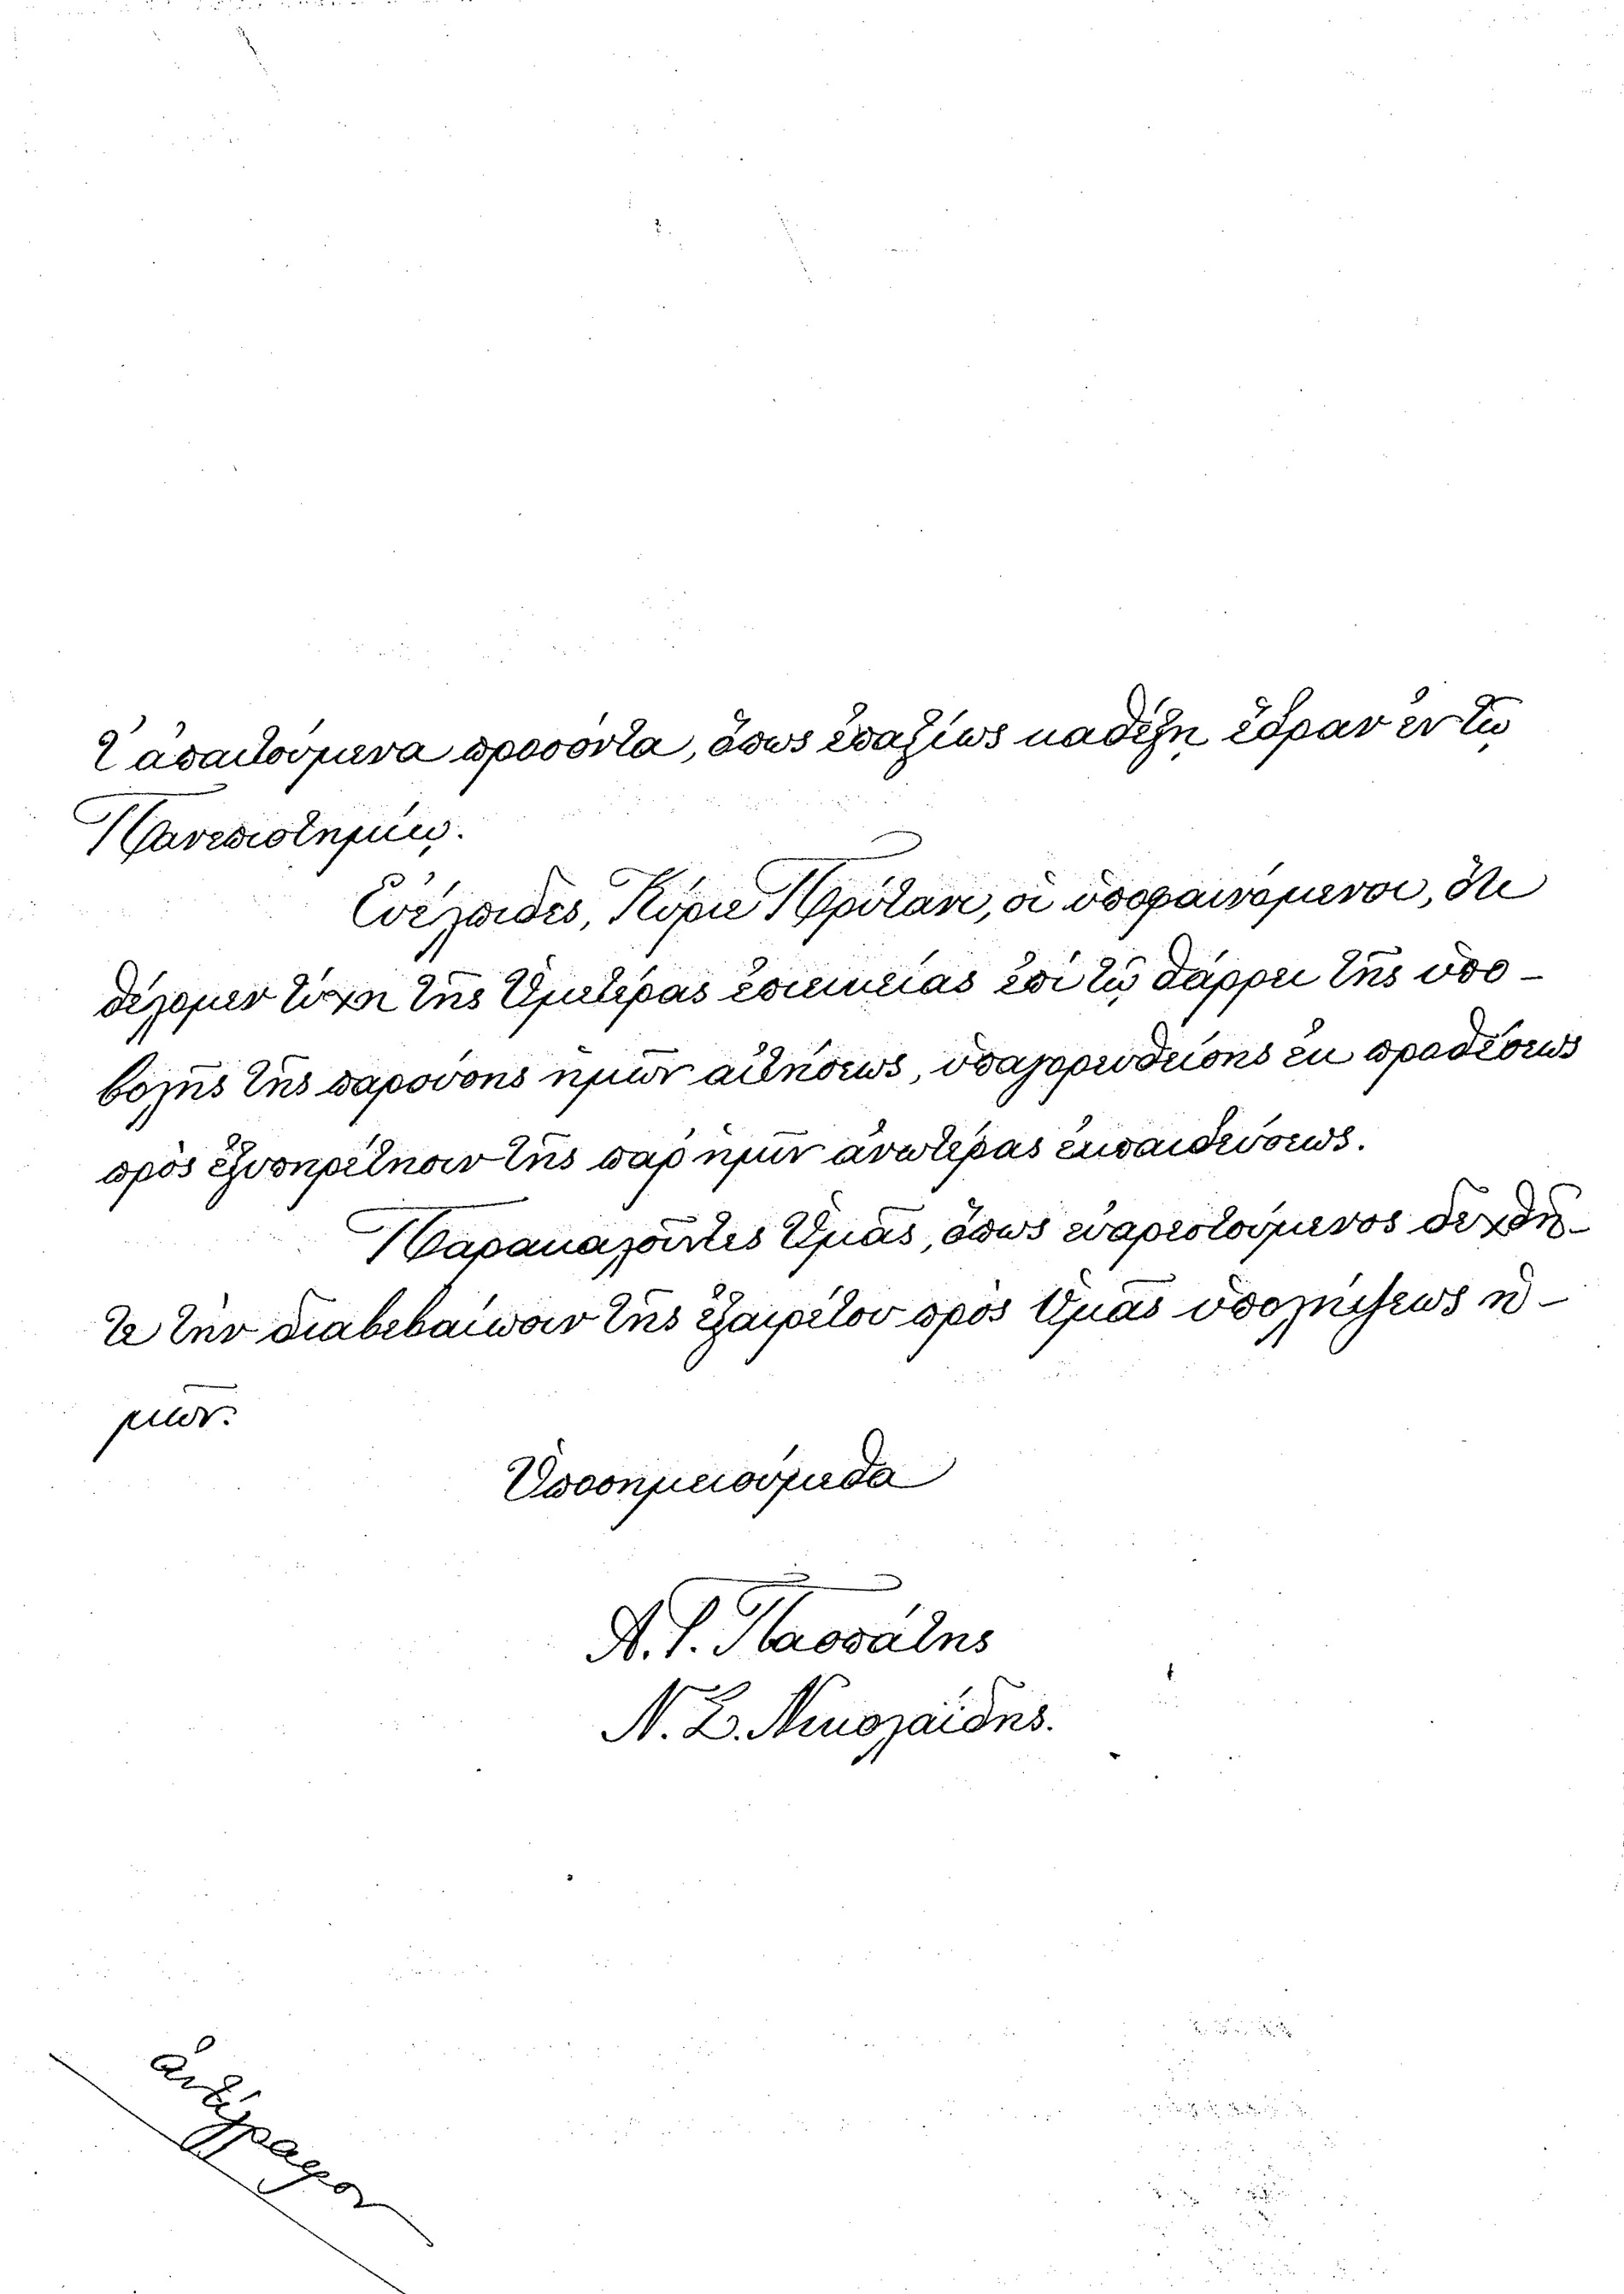 τ' ἀπαιτούμενα προσόντα, ὅπως ἐπαξίως καθέξῃ ἕδραν ἐν τῷ
Πανεπιστημίῳ.
Εὐέλπιδες, Κύριε Πρύτανι, οἱ ὑποφαινόμενοι, ὅτι
θέλομεν τύχῃ τῆς Ὑμετέρας ἐπιεικείας ἐπὶ τῷ θάρρει τῆς ὑπο-
βολῆς τῆς παρούσης ἡμῶν αἰτήσεως, ὑπαγορευθείσης ἐκ προθέσεως
πρὸς ἐξυπηρέτησιν τῆς παρ' ἡμῖν ἀνωτέρας ἐκπαιδεύσεως.
Παρακαλοῦντες Ὑμᾶς, ὅπως εὐαρεστούμενος δεχθῆ-
τε τὴν διαβεβαίωσιν τῆς ἐξαιρέτου πρὸς Ὑμᾶς ὑπολήψεως ἡ-
μῶν.
Ὑποσημειούμεθα
Α. Γ. Πασπάτης
Ν. Σ. Νικολαΐδης.
ἀντίγραφον